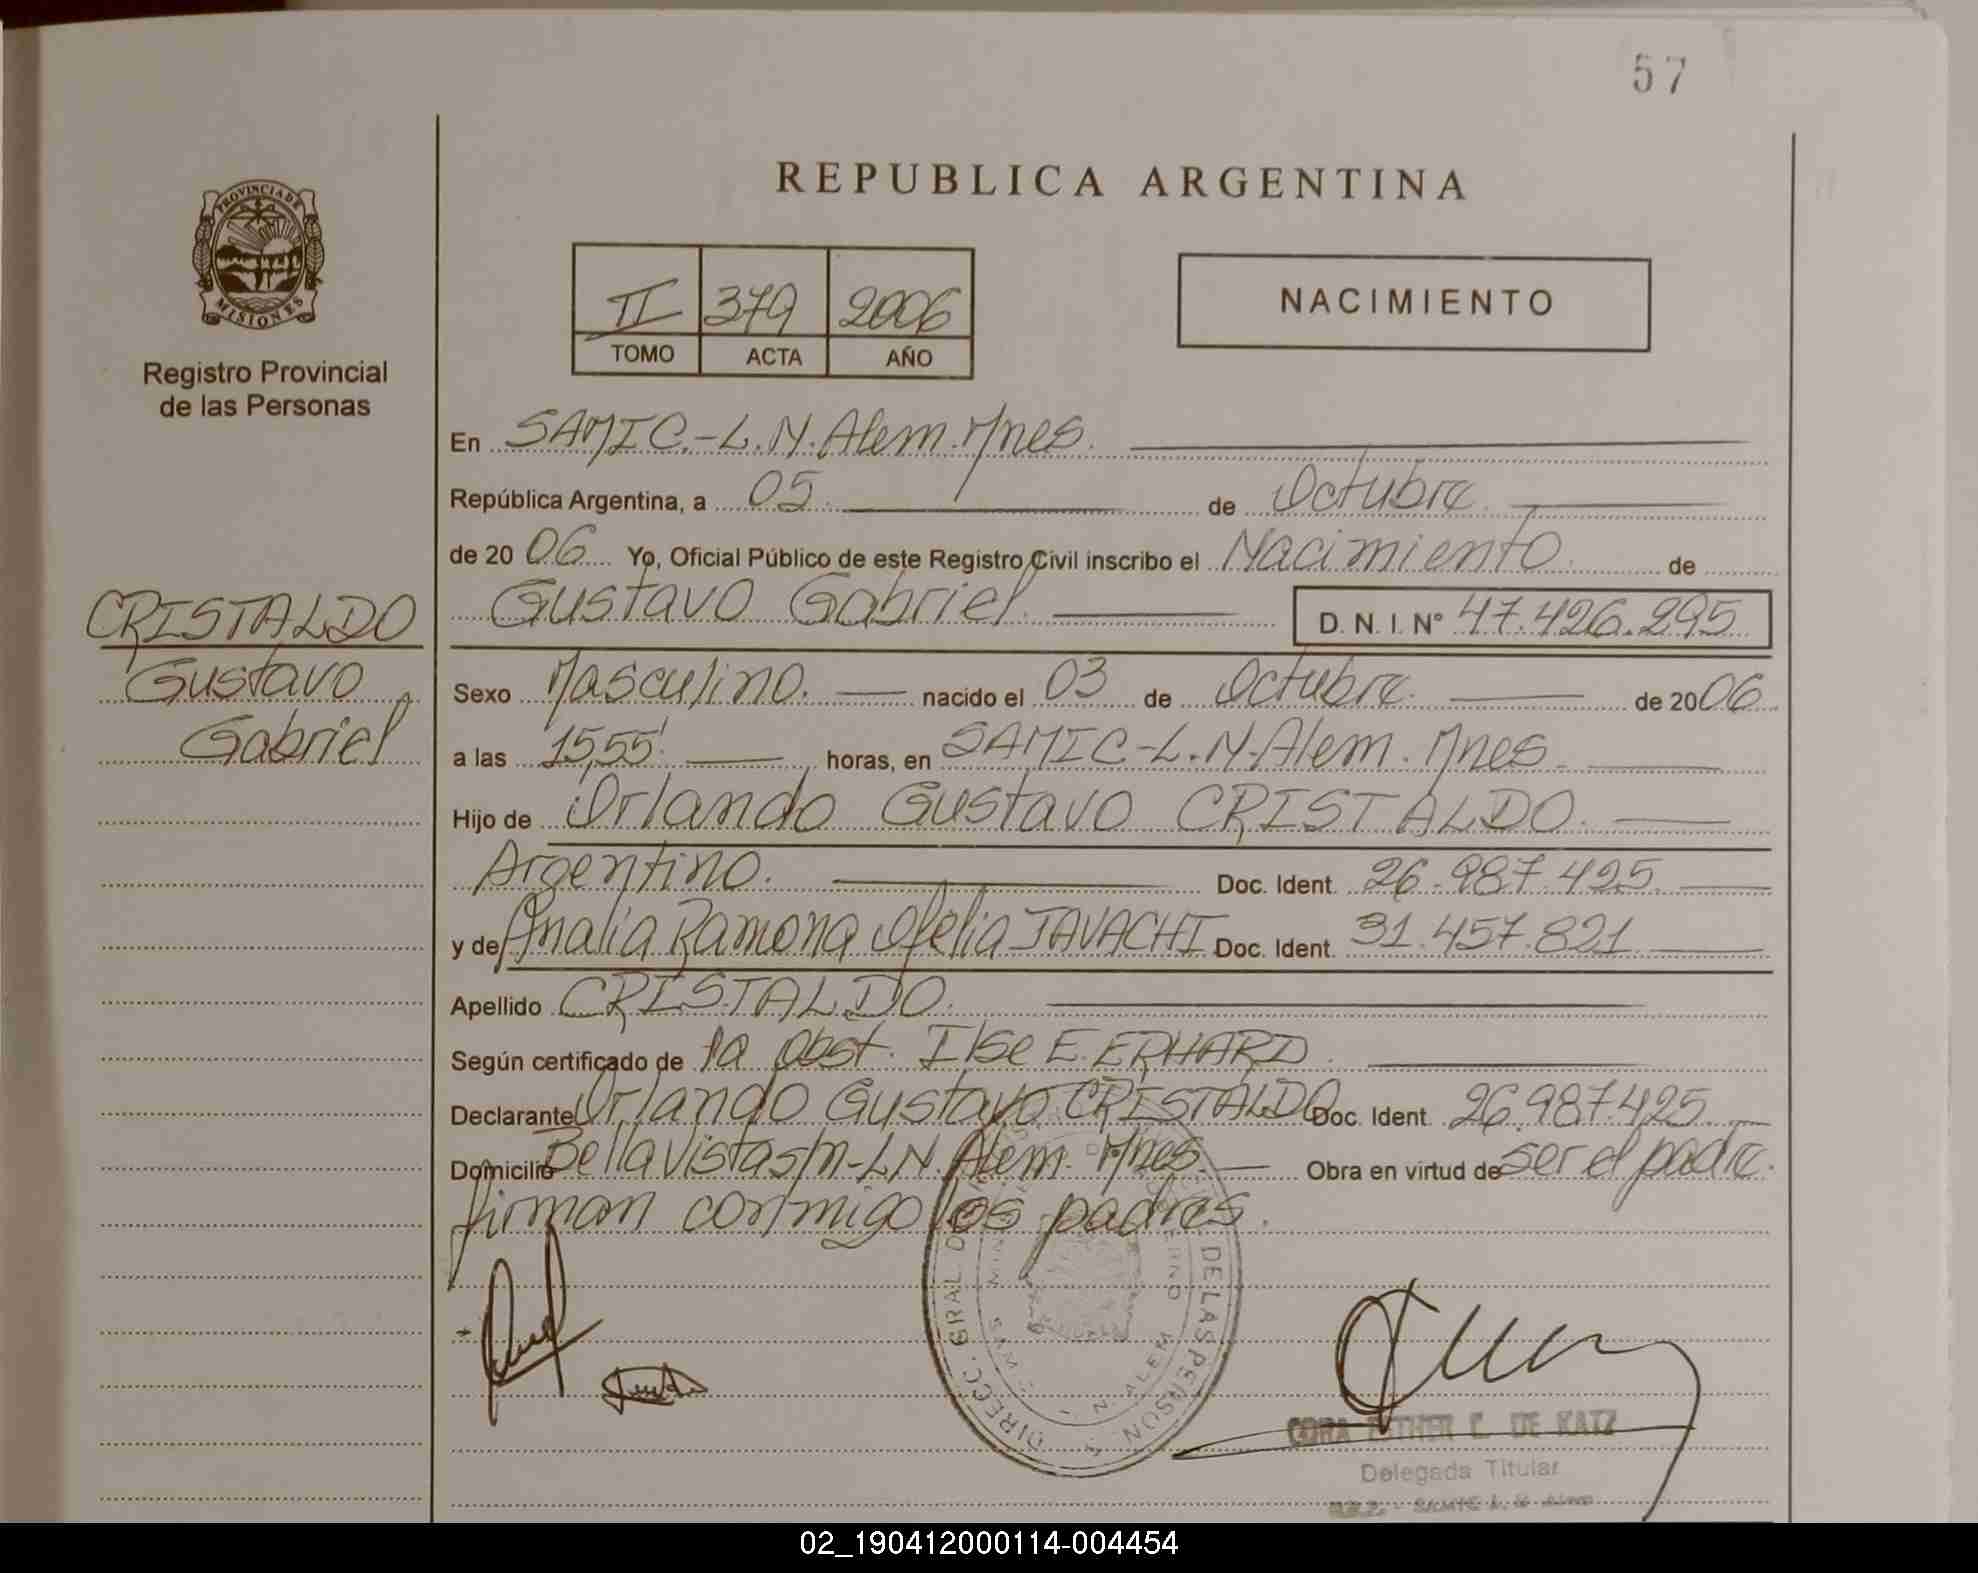 57
PROVINCIA DE
MISIONES
Registro Provincial
de las Personas
CRISTALDO
Gustavo
Gabriel
REPUBLICA ARGENTINA
II 379 2006
TOMO ACTA AÑO
NACIMIENTO
En SAMIC.-L.N.Alem.Mnes.
República Argentina, a 05 de Octubre
de 20 06 Yo, Oficial Público de este Registro Civil inscribo el Nacimiento de
Gustavo Gabriel. D. N. I. N° 47.426.295
Sexo Masculino. nacido el 03 de Octubre. de 20 06
a las 15,55' horas, en SAMIC-L.N-Alem. Mnes
Hijo de Orlando Gustavo CRISTALDO.
Argentino. Doc. Ident. 26.987.425
y de Analia Ramona Ofelia TAVACHI Doc. Ident. 31.457.821
Apellido CRISTALDO.
Según certificado de la obst. Ilse E. ERHARD.
Declarante Orlando Gustavo CRISTALDO Doc. Ident. 26.987.425
Domicilio Bella Vista s/n-L.N. Alem. Mnes. Obra en virtud de ser el padre.
firman conmigo los padres.
DIRECC. GRAL. DE LAS PERSON
N. ALEM
CORA ESTHER C. DE KATZ
Delegada Titular
SAMIC L. N. Alem
02_190412000114-004454